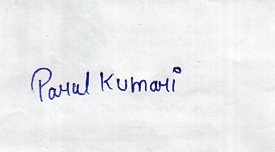 Parul Kumari